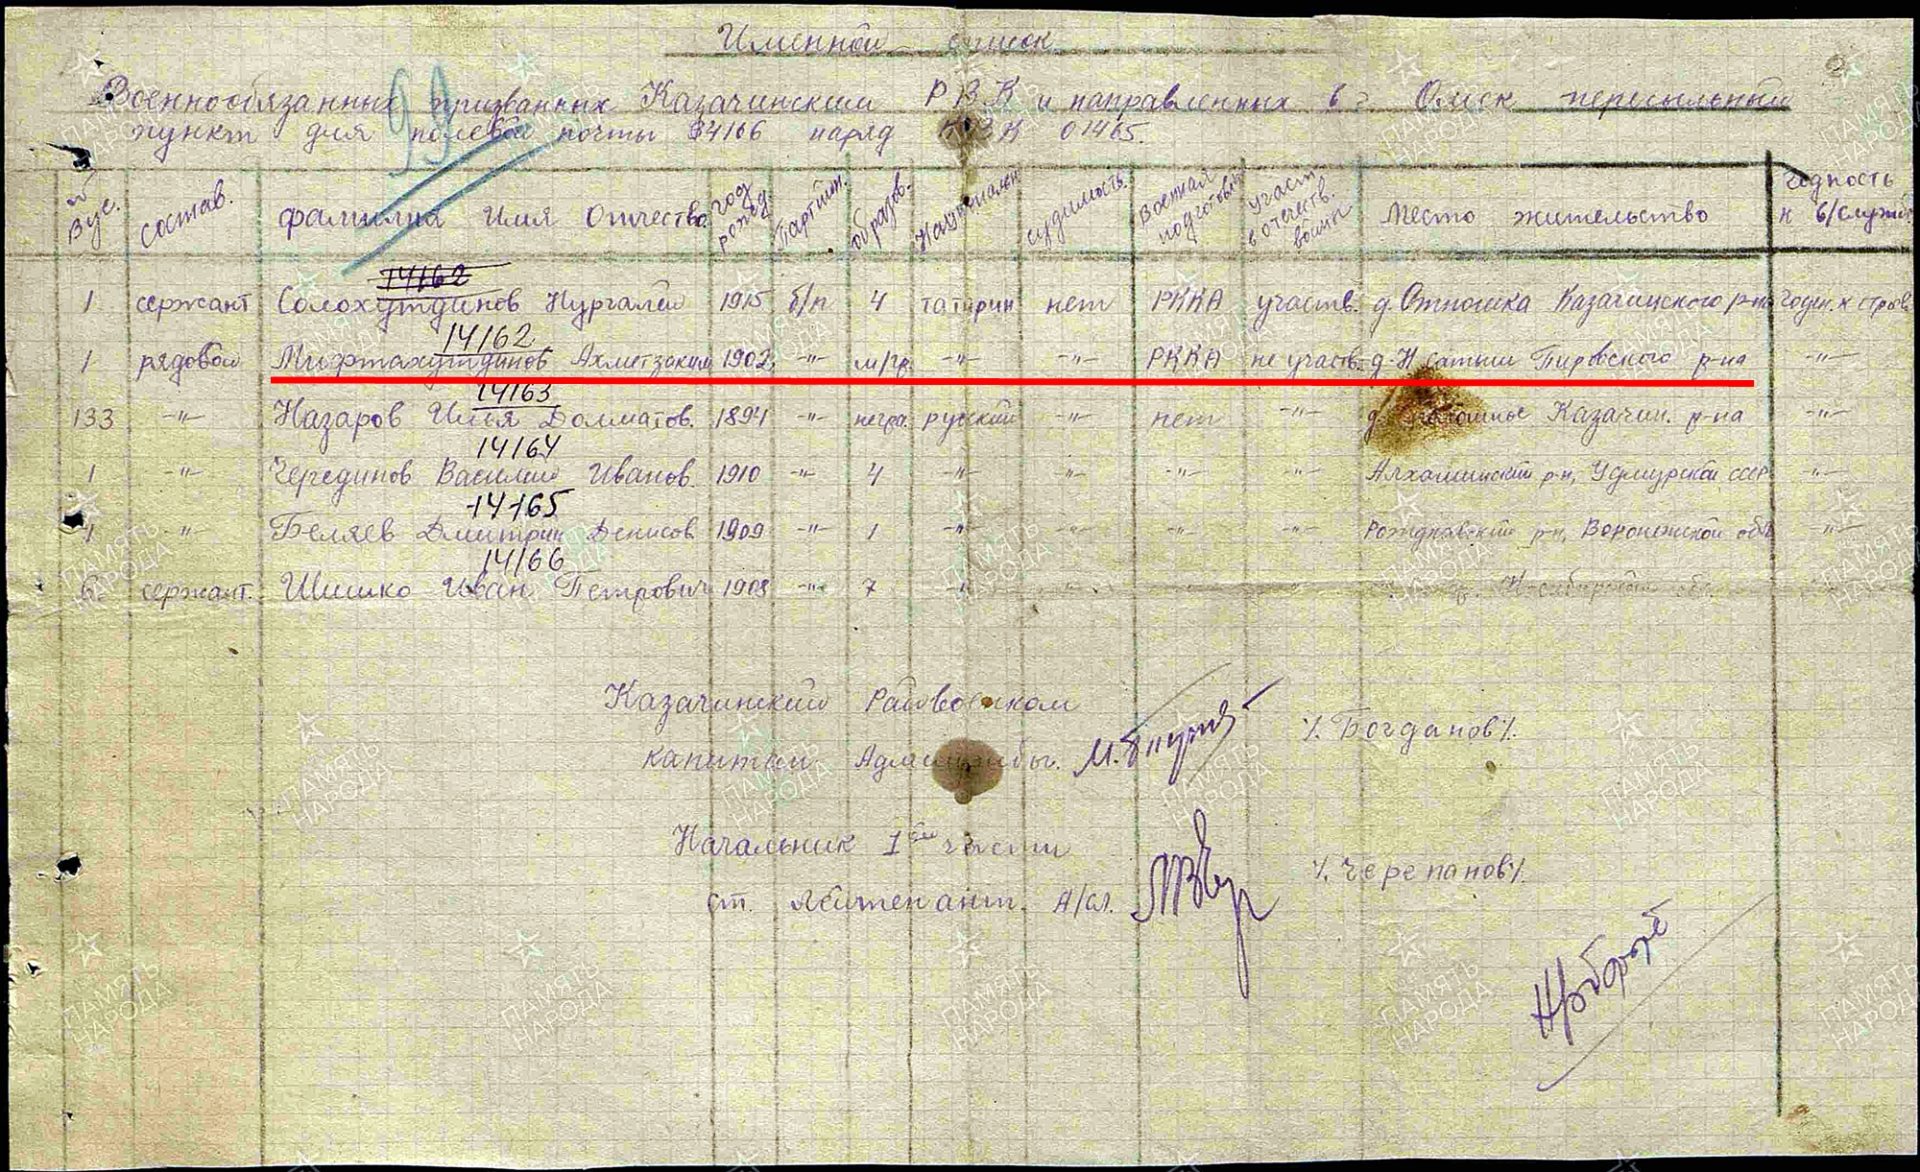 Именной список
Военнообязанных призванных Казачинским РВК и направленных в г. Омск пересыльный
пункт для полевой почты 34166 наряд 01465.
99
№ Вус. состав. Фамилия Имя Отчество год рожд. Партийн. образов. Национальн. судимость. Военная подготовка Участ. в отечеств. войне Место жительство годность к в/службе
14162
1 сержант Солохутдинов Нургалей 1915 б/п 4 татарин нет РККА участв. д. Отношка Казачинского р-на годен. к строев.
14162
1 рядовой Мифтахутдинов Ахметзаким 1902 -"- м/гр. -"- -"- РККА не участв. Пировского р-на -"-
14163
133 -"- Назаров Илья Долматов. 1894 -"- негра. русский -"- нет -"- д. Казачин. р-на -"-
14164
1 -"- Черединов Василий Иванов. 1910 -"- 4 -"- -"- -"- -"- р-н, Удмурской ССР -"-
14165
1 -"- Беляев Дмитрий Денисов 1909 -"- 1 -"- -"- -"- -"- р-н, Воронежской обл. -"-
14166
6 сержант. Шишко Иван Петрович 1908 -"- 7 -"- Н-сибирской обл.
Казачинский Райвоенком
капитан Админслужбы. /Богданов/.
Начальник 1ой части
ст. лейтенант. А/сл. /Черепанов/.
ПАМЯТЬ НАРОДА